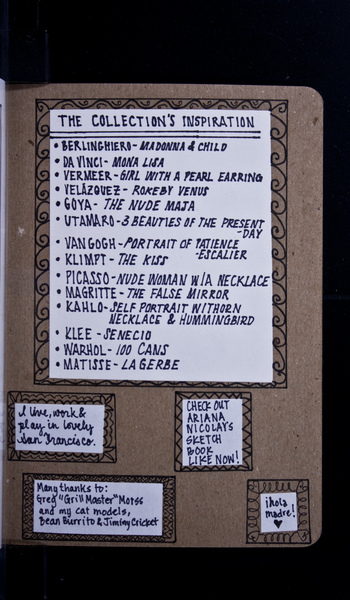 THE COLLECTION'S INSPIRATION
• BERLINGHIERO - MADONNA & CHILD
• DA VINCI - MONA LISA
• VERMEER - GIRL WITH A PEARL EARRING
• VELÁZQUEZ - ROKEBY VENUS
• GOYA - THE NUDE MAJA
• UTAMARO - 3 BEAUTIES OF THE PRESENT
-DAY
VAN GOGH - PORTRAIT OF PATIENCE
-ESCALIER
• KLIMPT - THE KISS
• PICASSO - NUDE WOMAN W/A NECKLACE
• MAGRITTE - THE FALSE MIRROR
• KAHLO - SELF PORTRAIT W/THORN
NECKLACE & HUMMINGBIRD
• KLEE - SENECIO
• WARHOL - 100 CANS
• MATISSE - LA GERBE
I live, work &
play in lovely
San Francisco.
CHECK OUT
ARIANA
NICOLAY'S
SKETCH
BOOK
LIKE NOW!
Many thanks to:
Greg "Grill Master" Morss
and my cat models,
Bean Burrito & Jiminy Cricket
¡Hola
madre!
♥